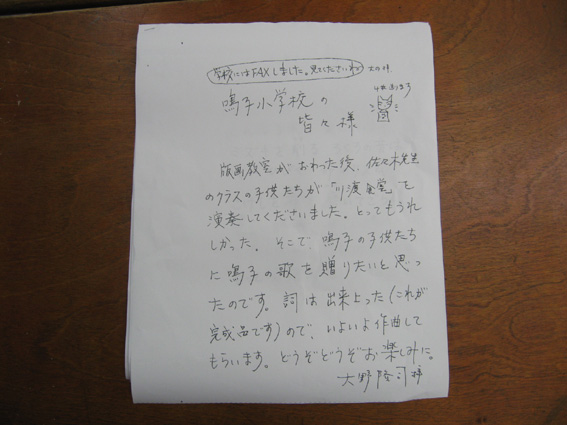 学校にはFAXしました。見てくださいネ。
鳴子小学校の
皆々様
版画教室がおわった後、佐々木先生
のクラスの子供たちが「川渡
を
演奏してくださいました。とってもうれ
しかった。そこで、鳴子の子供たち
に鳴子の歌を贈りたいと思っ
たのです。詞は出来上った(これが
完成品です)ので、いよいよ作曲して
もらいます。どうぞどうぞお楽しみに。
大野隆司